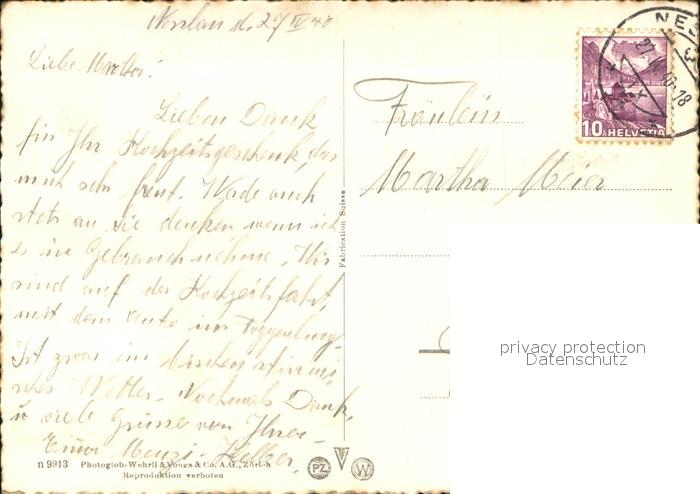 Nesslau d. 27/IV 40
Liebe Martha!
Lieben Dank
für Ihr Hochzeitsgeschenk, das
mich sehr freut. Werde auch
stets an sie denken wenn ich
es in Gebrauch nehme. Wir
sind auf der Hochzeitsfahrt,
mit dem Auto ins Toggenburg.
Ist zwar ein bischen stürmi-
sches Wetter. Nochmals Dank,
u viele Grüsse von Ihrer
Emmi Menzi-Keller.
Fräulein
Martha Meier
10 HELVETIA
NES
27. 40.-18
Fabrication Suisse
privacy protection
Datenschutz
n 9913 Photoglob-Wehrli & Vouga & Co. A.G., Zürich
Reproduktion verboten
PZ W